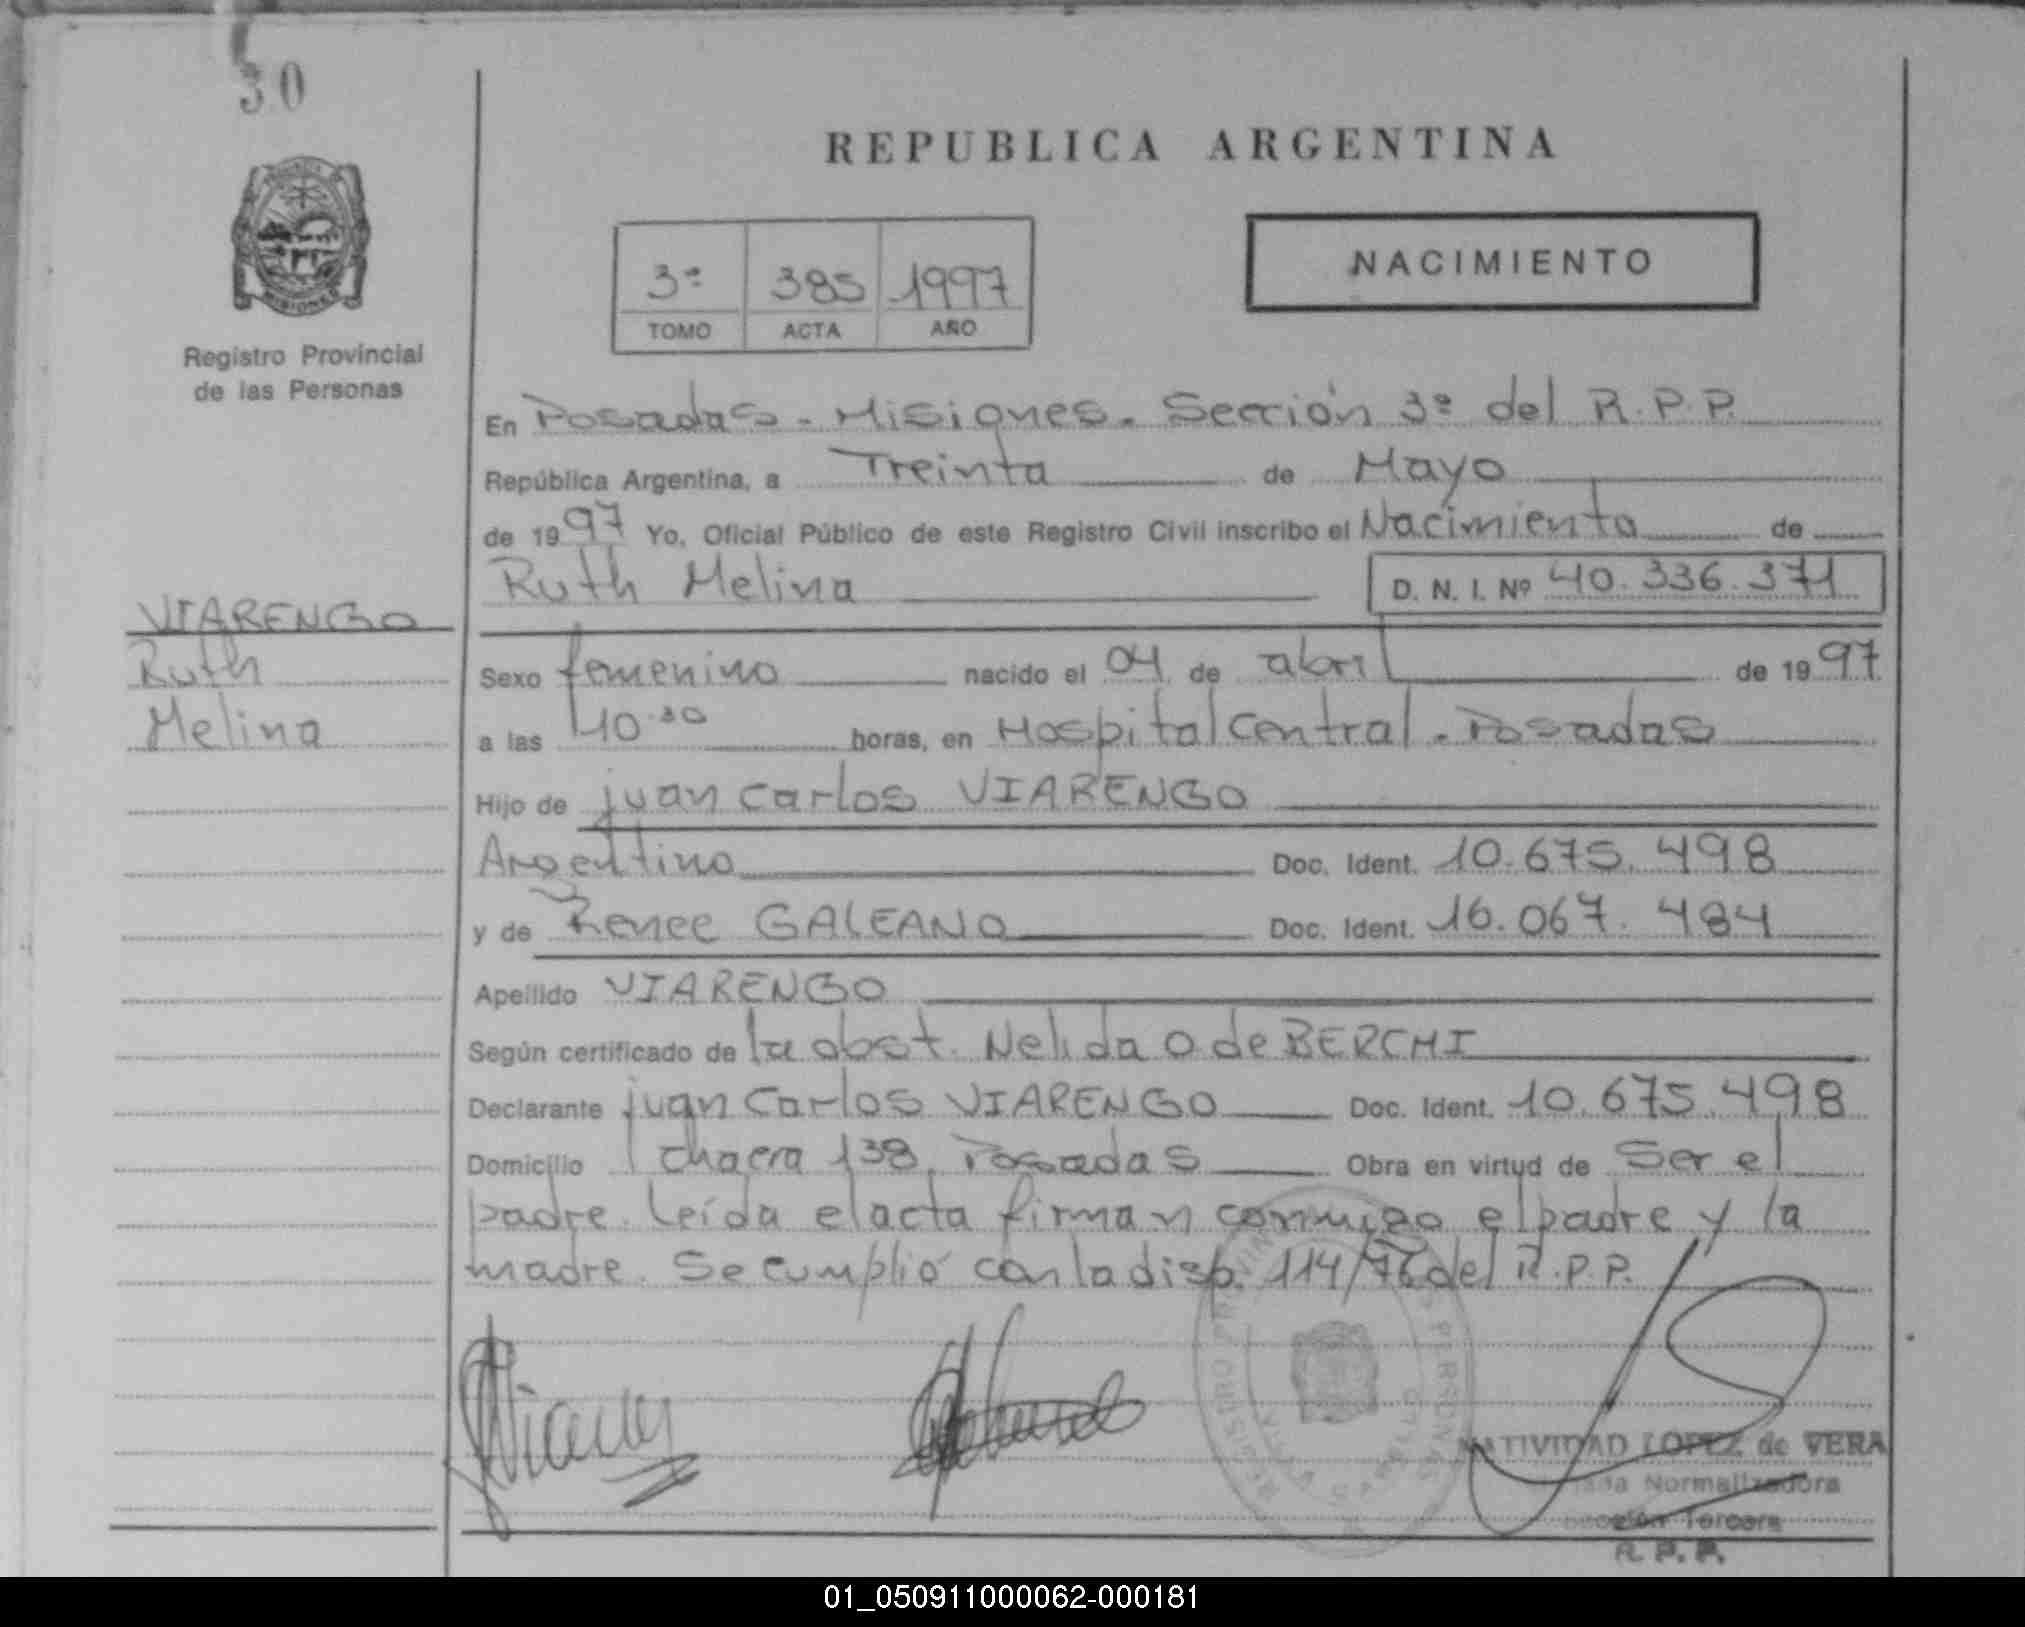 30
REPUBLICA ARGENTINA
NACIMIENTO
3ª 385 1997
TOMO ACTA AÑO
MISIONES
Registro Provincial
de las Personas
En Posadas - Misiones. Sección 3ª del R.P.P.
República Argentina, a Treinta de Mayo
de 1997 Yo, Oficial Público de este Registro Civil inscribo el Nacimiento de
Ruth Melina D. N. I. Nº 40.336.371
VIARENGO
Ruth
Melina
Sexo femenino nacido el 04 de abril de 1997
a las 10.30 horas, en Hospital Central. Posadas
Hijo de juan Carlos VIARENGO
Argentino Doc. Ident. 10.675.498
y de Renee GALEANO Doc. Ident. 16.067.484
Apellido VIARENGO
Según certificado de la obst. Nelida O de BERCHI
Declarante juan Carlos VIARENGO Doc. Ident. 10.675.498
Domicilio chacra 138, Posadas Obra en virtud de Ser el
padre. leída el acta firman conmigo el padre y la
madre. Se cumplió con la disp. 114/76 del R.P.P.
NATIVIDAD LOPEZ de VERA
Normalizadora
Tercera
R. P. P.
01_050911000062-000181